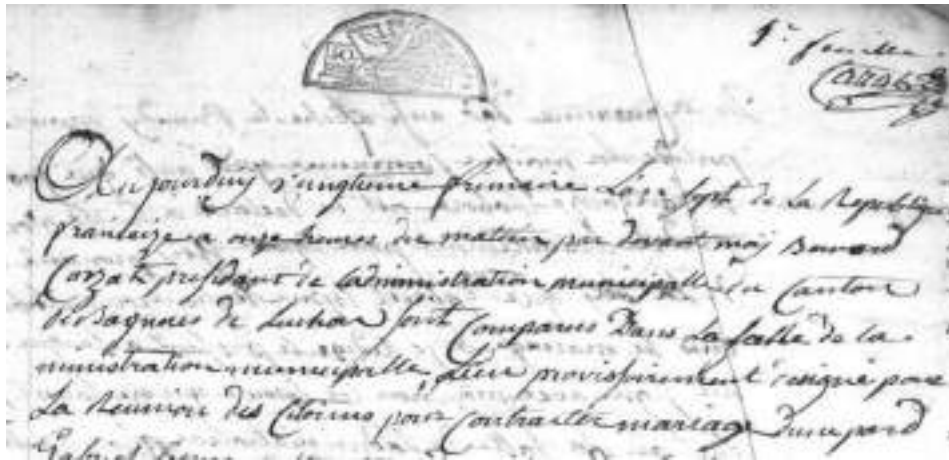 1re feuille
Aujourdhuy vingtieme frimaire L'an sept de La Republique
francoize a onze heures du mattin par devant moy Bernard
presidant de l'administration municipalle du Canton
de Bagneres de Luchon sont Comparus Dans La salle de la
ministration municipalle, Lieu provissoirement designé pour
La Reunion des Citoiens pour Contracter mariage Dune pard
Gabriel